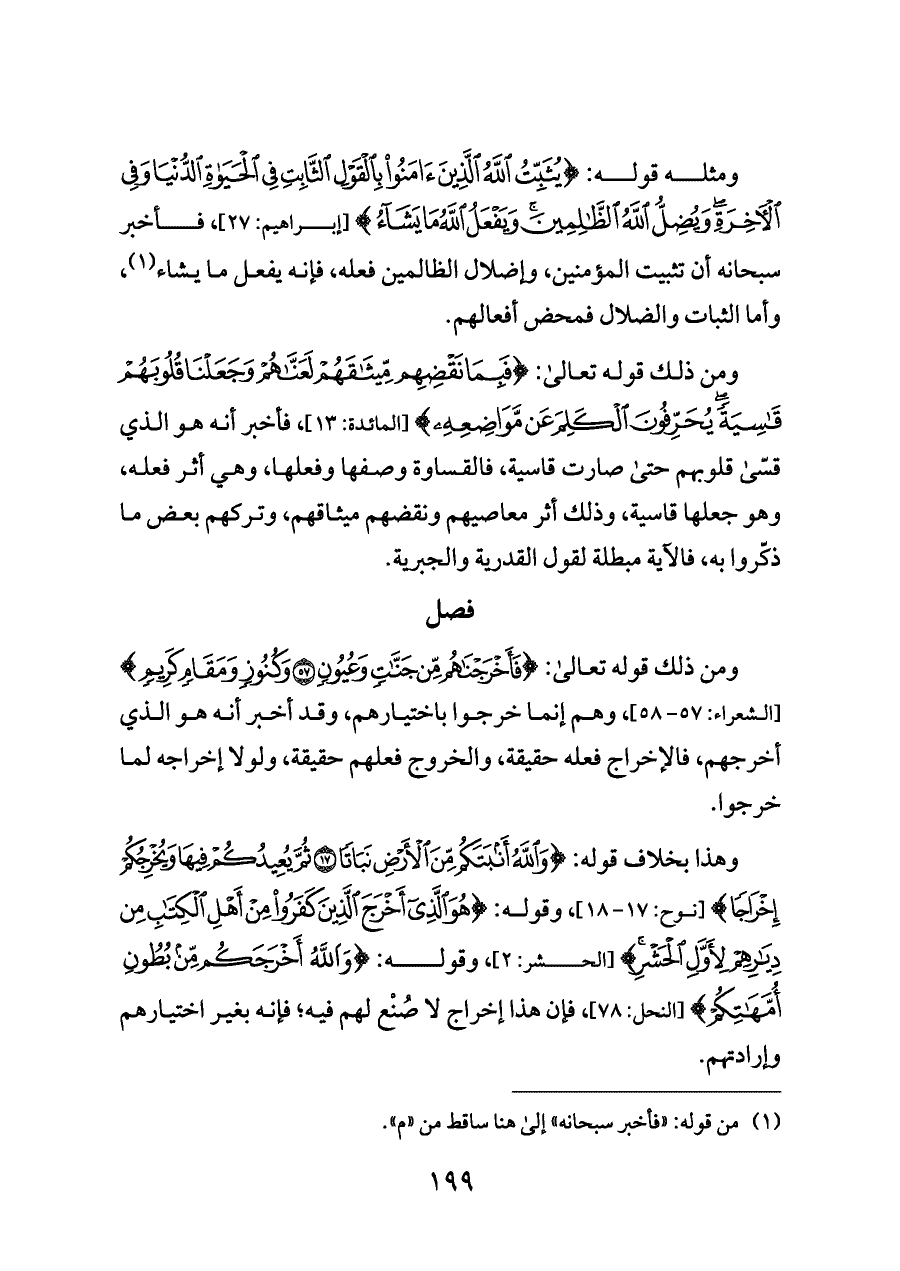 ومثله قوله: ﴿يُثَبِّتُ ٱللَّهُ ٱلَّذِينَ ءَامَنُواْ بِٱلْقَوْلِ ٱلثَّابِتِ فِي ٱلْحَيَوٰةِ ٱلدُّنْيَا وَفِي
ٱلْأَخِرَةِۖ وَيُضِلُّ ٱللَّهُ ٱلظَّٰلِمِينَۚ وَيَفْعَلُ ٱللَّهُ مَا يَشَآءُ﴾ [إبراهيم: ٢٧]، فأخبر
سبحانه أن تثبيت المؤمنين، وإضلال الظالمين فعله، فإنه يفعل ما يشاء(١)،
وأما الثبات والضلال فمحض أفعالهم.
ومن ذلك قوله تعالىٰ: ﴿فَبِمَا نَقْضِهِم مِّيثَٰقَهُمْ لَعَنَّٰهُمْ وَجَعَلْنَا قُلُوبَهُمْ
قَٰسِيَةًۖ يُحَرِّفُونَ ٱلْكَلِمَ عَن مَّوَاضِعِهِۦ﴾ [المائدة: ١٣]، فأخبر أنه هو الذي
قسّىٰ قلوبهم حتىٰ صارت قاسية، فالقساوة وصفها وفعلها، وهي أثر فعله،
وهو جعلها قاسية، وذلك أثر معاصيهم ونقضهم ميثاقهم، وتركهم بعض ما
ذكّروا به، فالآية مبطلة لقول القدرية والجبرية.
فصل
ومن ذلك قوله تعالىٰ: ﴿فَأَخْرَجْنَٰهُم مِّن جَنَّٰتٍ وَعُيُونٍ ٥٧ وَكُنُوزٍ وَمَقَامٍ كَرِيمٍ﴾
[الشعراء: ٥٧- ٥٨]، وهم إنما خرجوا باختيارهم، وقد أخبر أنه هو الذي
أخرجهم، فالإخراج فعله حقيقة، والخروج فعلهم حقيقة، ولولا إخراجه لما
خرجوا.
وهذا بخلاف قوله: ﴿وَٱللَّهُ أَنۢبَتَكُم مِّنَ ٱلْأَرْضِ نَبَاتًا ١٧ ثُمَّ يُعِيدُكُمْ فِيهَا وَيُخْرِجُكُمْ
إِخْرَاجًا﴾ [نوح: ١٧- ١٨]، وقوله: ﴿هُوَ ٱلَّذِيٓ أَخْرَجَ ٱلَّذِينَ كَفَرُواْ مِنْ أَهْلِ ٱلْكِتَٰبِ مِن
دِيَٰرِهِمْ لِأَوَّلِ ٱلْحَشْرِۚ﴾ [الحشر: ٢]، وقوله: ﴿وَٱللَّهُ أَخْرَجَكُم مِّنۢ بُطُونِ
أُمَّهَٰتِكُمْ﴾ [النحل: ٧٨]، فإن هذا إخراج لا صُنْع لهم فيه؛ فإنه بغير اختيارهم
وإرادتهم.
(١) من قوله: «فأخبر سبحانه» إلىٰ هنا ساقط من «م».
١٩٩